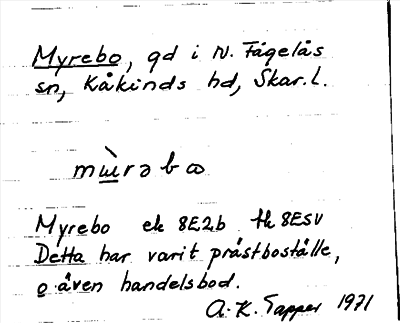 Myrebo, gd i N. Fågelås
sn, Kåkinds hd, Skar. l.
mɯ̀rəbɷ
Myrebo ek 8E2b fk 8E5V
Detta har varit prästboställe,
o även handelsbod.
A. K. Tapper 1971